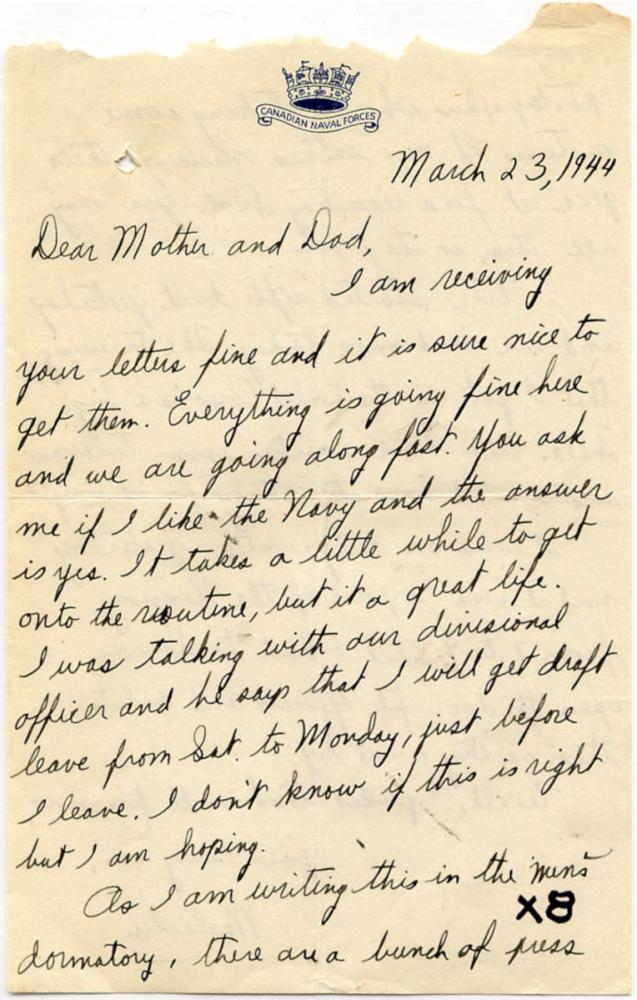 CANADIAN NAVAL FORCES
March 23, 1944
Dear Mother and Dad,
I am receiving
your letters fine and it is sure nice to
get them. Everything is going fine here
and we are going along fast. You ask
me if I like the Navy and the answer
is yes. It takes a little while to get
onto the routine, but it a great life.
I was talking with our divisional
officer and he says that I will get draft
leave from Sat. to Monday, just before
I leave. I don't know if this is right
but I am hoping.
As I am writing this in the men's
X8
dormatory, there are a bunch of press